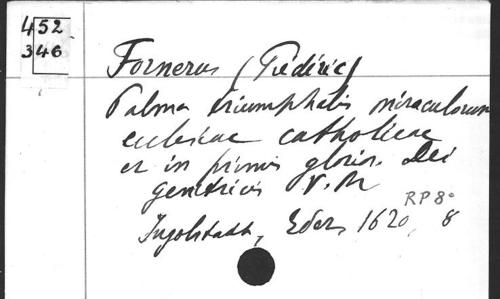 452
346
Fornerus (Frédéric)
Palma triumphalis miraculorum
ecclesiae catholicae
et in primis glorios. Dei
genitricis V. M
RP 8°
Ingolstadt, Eder, 1620, 8